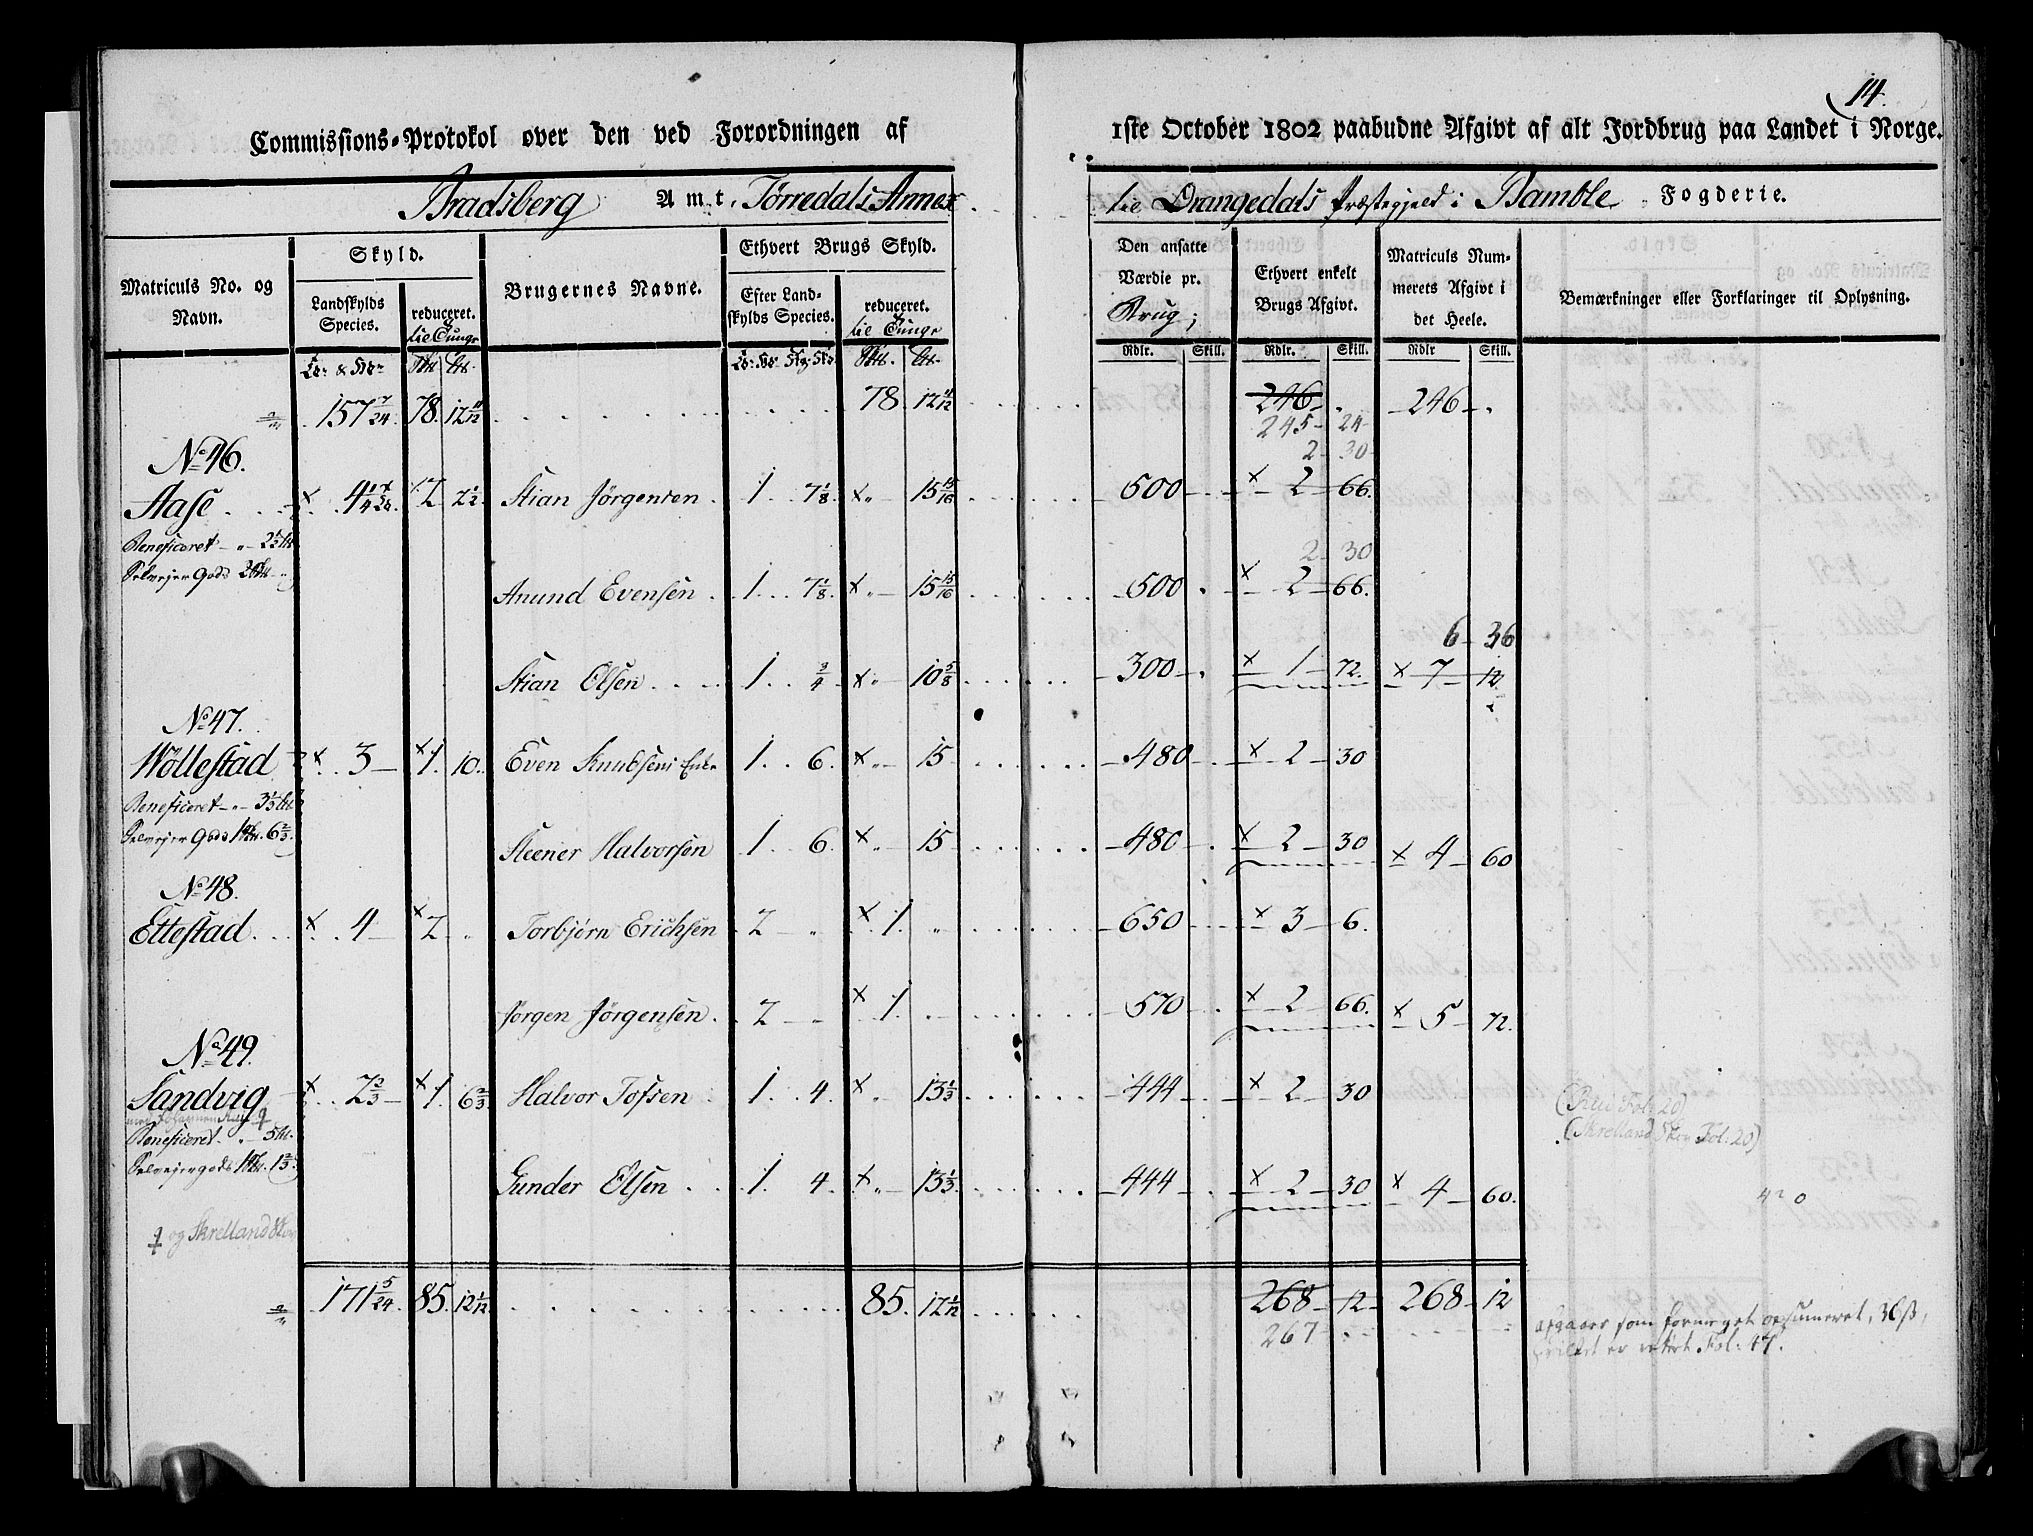 14.
Commissions-Protokol over den ved Forordningen af 1ste October 1802 paabudne Afgivt af alt Jordbrug paa Landet i Norge.
Bradsberg Amt, Tørredals Annex til Drangedals Præstegjeld i Bamble Fogderie.
Matriculs No. og Navn. Skyld. Brugernes Navne. Ethvert Brugs Skyld. Den ansatte Værdie pr. Brug; Ethvert enkelt Brugs Afgivt. Matriculs Nummerets Afgivt i det Heele. Bemærkninger eller Forklaringer til Oplysning.
Landskylds Species. reduceret. til Tunge Efter Landskylds Species. reduceret. til Tunge
Rdlr. Skill. Rdlr. Skill. Rdlr Skill.
157 7/24. 78. 12 11/12 78. 12 11/12 246 - . 246 - .
245 - 24
No 46. 2 - 30
Aase 4 2 2 1/2 Stian Jørgensen 1 7 1/8 x " 15 15/16 600 x 2 - 66.
Beneficeret
Selvejer Gods 2 - 30
Anund Evensen 1 7 1/8 x " 15 15/16 500 x 2 - 66.
6 - 36
Stian Olsen 1 3/4 x " 10 5/8 300 x 1 - 72. x 7 - 12
No 47.
Wöllestad x 3 x 1. 10. Even Knudsens Enke 1 6. x " 15 480 x 2 - 30
Beneficeret - " - 3 1/3
Selvejer Gods 1 6 2/3
Steener Halvorsen 1 6. x " 15 480 x 2 - 30 x 4 - 60
No 48.
Ettestad x 4 x 2 " Torbjørn Erichsen 2 " x 1. " 650 x 3 - 6.
Jørgen Jørgensen 2 - x 1. 570 x 2 - 66. x 5 - 72.
No 49.
Sandvig x 2 2/3 x 1. 6 2/3 Halvor Tofsen 1 4. x " 13 1/3 444 x 2 - 30
Beneficeret " 5
Selvejergods 1 1 2/3
(Rui Fol: 20)
(Skrelland Skov Fol: 20)
Gunder Olsen 1. 4. x " 13 1/3 444 x 2 - 30 x 4 - 60.
og Skrelland Skov
171 5/24 85. 12 1/12 85. 12 1/12 268 - 12 268 - 12
267
afgaaer som formeget opsumeret, 36 ß,
er Fol: 47.